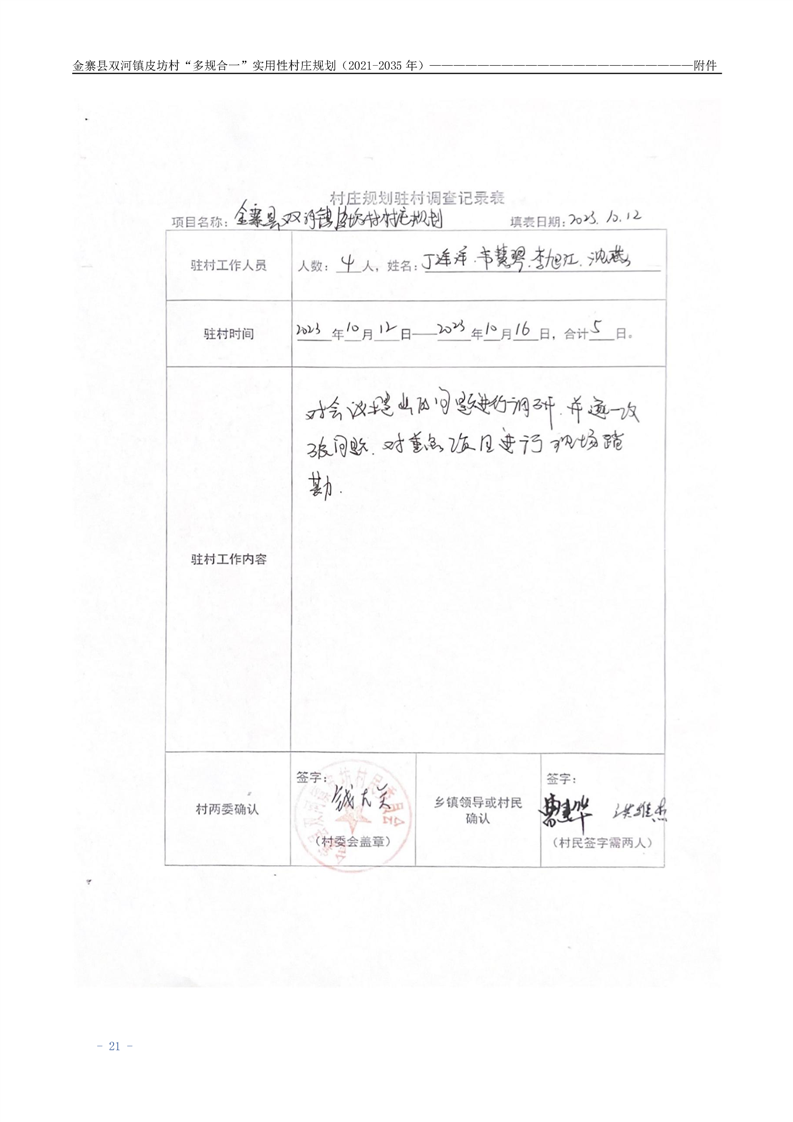 金寨县双河镇皮坊村“多规合一”实用性村庄规划（2021-2035 年）——————————————————————附件
村庄规划驻村调查记录表
项目名称：金寨县双河镇皮坊村村庄规划 填表日期：2023.10.12
驻村工作人员 人数：4人，姓名：丁连洋.韦慧琴.李旭江.沈燕
驻村时间 2023年10月12日——2023年10月16日，合计5日。
对会议提出的问题进行调研.并逐一攻
破问题.对重点项目进行现场踏
勘.
驻村工作内容
签字： 签字：
村两委确认 乡镇领导或村民
确认
（村委会盖章） （村民签字需两人）
- 21 -